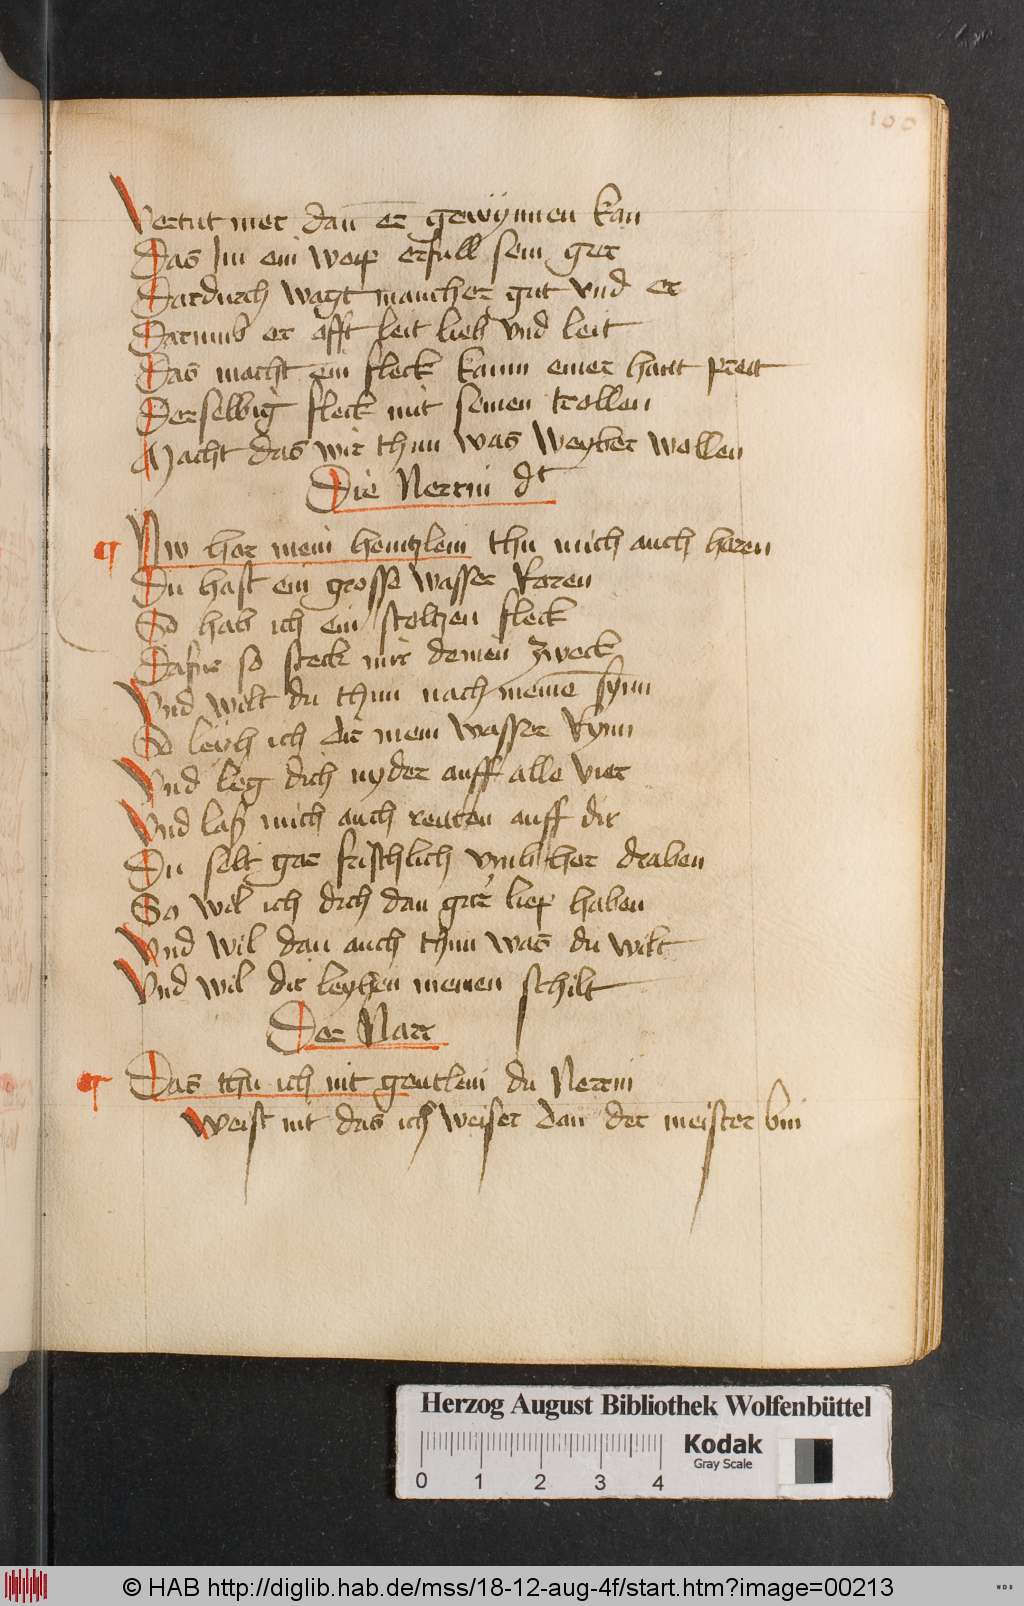 100
Vertut mer dan er gewÿnnen kan
Das Im ein weip erfull sein ger
Dardurch wagt mancher gut vnd er
Darumb er offt leit lieb vnd leit
Das macht ein fleck kaum einer hant preit
Derselbig fleck mit seinen trollen
Macht das wir thun was weyber wollen
Die Nerrin dt
Nw hor mein heintzlein thu mich auch horen
Du hast ein grosse wasser Roren
So hab ich ein stoltzen fleck
Dafur so steck mir deinen zweck
Vnd wilt du thun nach meinē synn
So leyh ich dir mein wasser Rynn
Vnd leg dich nyder auff alle vier
Vnd laß mich auch reuten auff dir
Du solt gar frischlich vmb her draben
So wil ich dich dan ger liep haben
Vnd wil dan auch thun was du wilt
Vnd wil dir leyhen meinen schilt
Der Narr
Das thu ich nit gentlein du Nerrin
Weist nit das ich weiser dan der meister bin
Herzog August Bibliothek Wolfenbüttel
Kodak
Gray Scale
0 1 2 3 4
© HAB http://diglib.hab.de/mss/18-12-aug-4f/start.htm?image=00213